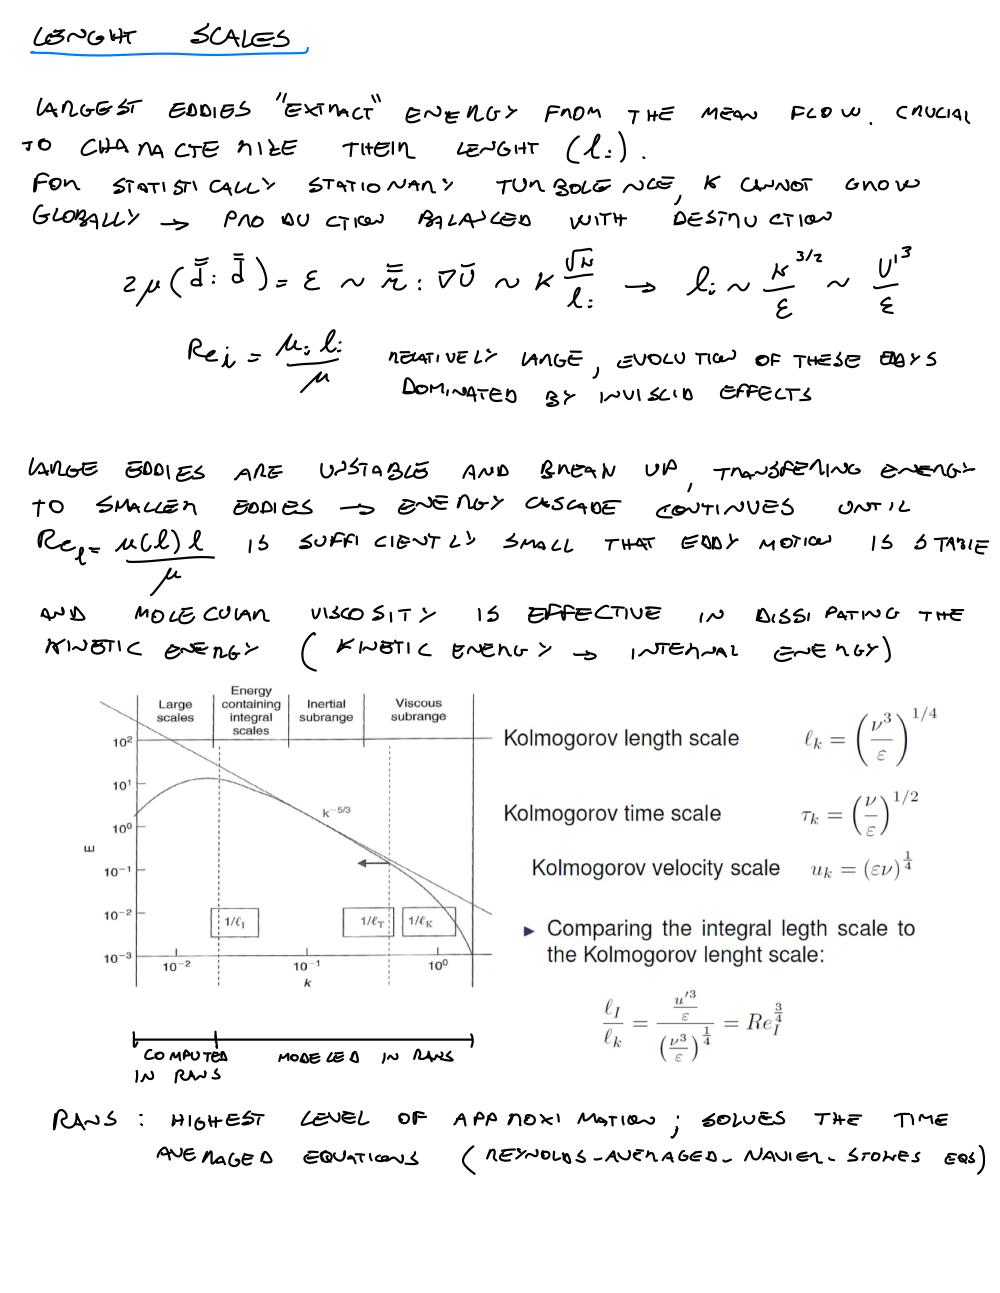 LENGHT SCALES
LARGEST EDDIES "EXTRACT" ENERGY FROM THE MEAN FLOW. CRUCIAL
TO CHARACTERIZE THEIR LENGHT (l_i).
FOR STATISTICALLY STATIONARY TURBOLENCE, K CANNOT GROW
GLOBALLY → PRODUCTION BALANCED WITH DESTRUCTION
2μ(d̿ : d̿) = ε ~ τ̿ : ∇Ū ~ K √K / l_i → l_i ~ K^3/2 / ε ~ U'^3 / ε
Re_i = μ_i l_i / μ RELATIVELY LARGE, EVOLUTION OF THESE EDDYS
DOMINATED BY INVISCID EFFECTS
LARGE EDDIES ARE UNSTABLE AND BREAK UP, TRANSFERING ENERGY
TO SMALLER EDDIES → ENERGY CASCADE CONTINUES UNTIL
Re_l = μ(l) l / μ IS SUFFICIENTLY SMALL THAT EDDY MOTION IS STABLE
AND MOLECULAR VISCOSITY IS EFFECTIVE IN DISSIPATING THE
KINETIC ENERGY (KINETIC ENERGY → INTERNAL ENERGY)
Large scales
Energy containing integral scales
Inertial subrange
Viscous subrange
10^2
10^1
10^0
10^-1
10^-2
10^-3
E
k^-5/3
1/ℓ_I
1/ℓ_T
1/ℓ_K
10^-2 10^-1 10^0
k
Kolmogorov length scale ℓ_k = (ν^3/ε)^1/4
Kolmogorov time scale τ_k = (ν/ε)^1/2
Kolmogorov velocity scale u_k = (εν)^1/4
▶ Comparing the integral legth scale to
the Kolmogorov lenght scale:
ℓ_I / ℓ_k = (u'^3/ε) / (ν^3/ε)^1/4 = Re_I^3/4
COMPUTED
IN RANS
MODELED IN RANS
RANS : HIGHEST LEVEL OF APPROXIMATION ; SOLVES THE TIME
AVERAGED EQUATIONS (REYNOLDS-AVERAGED-NAVIER-STOKES EQS)